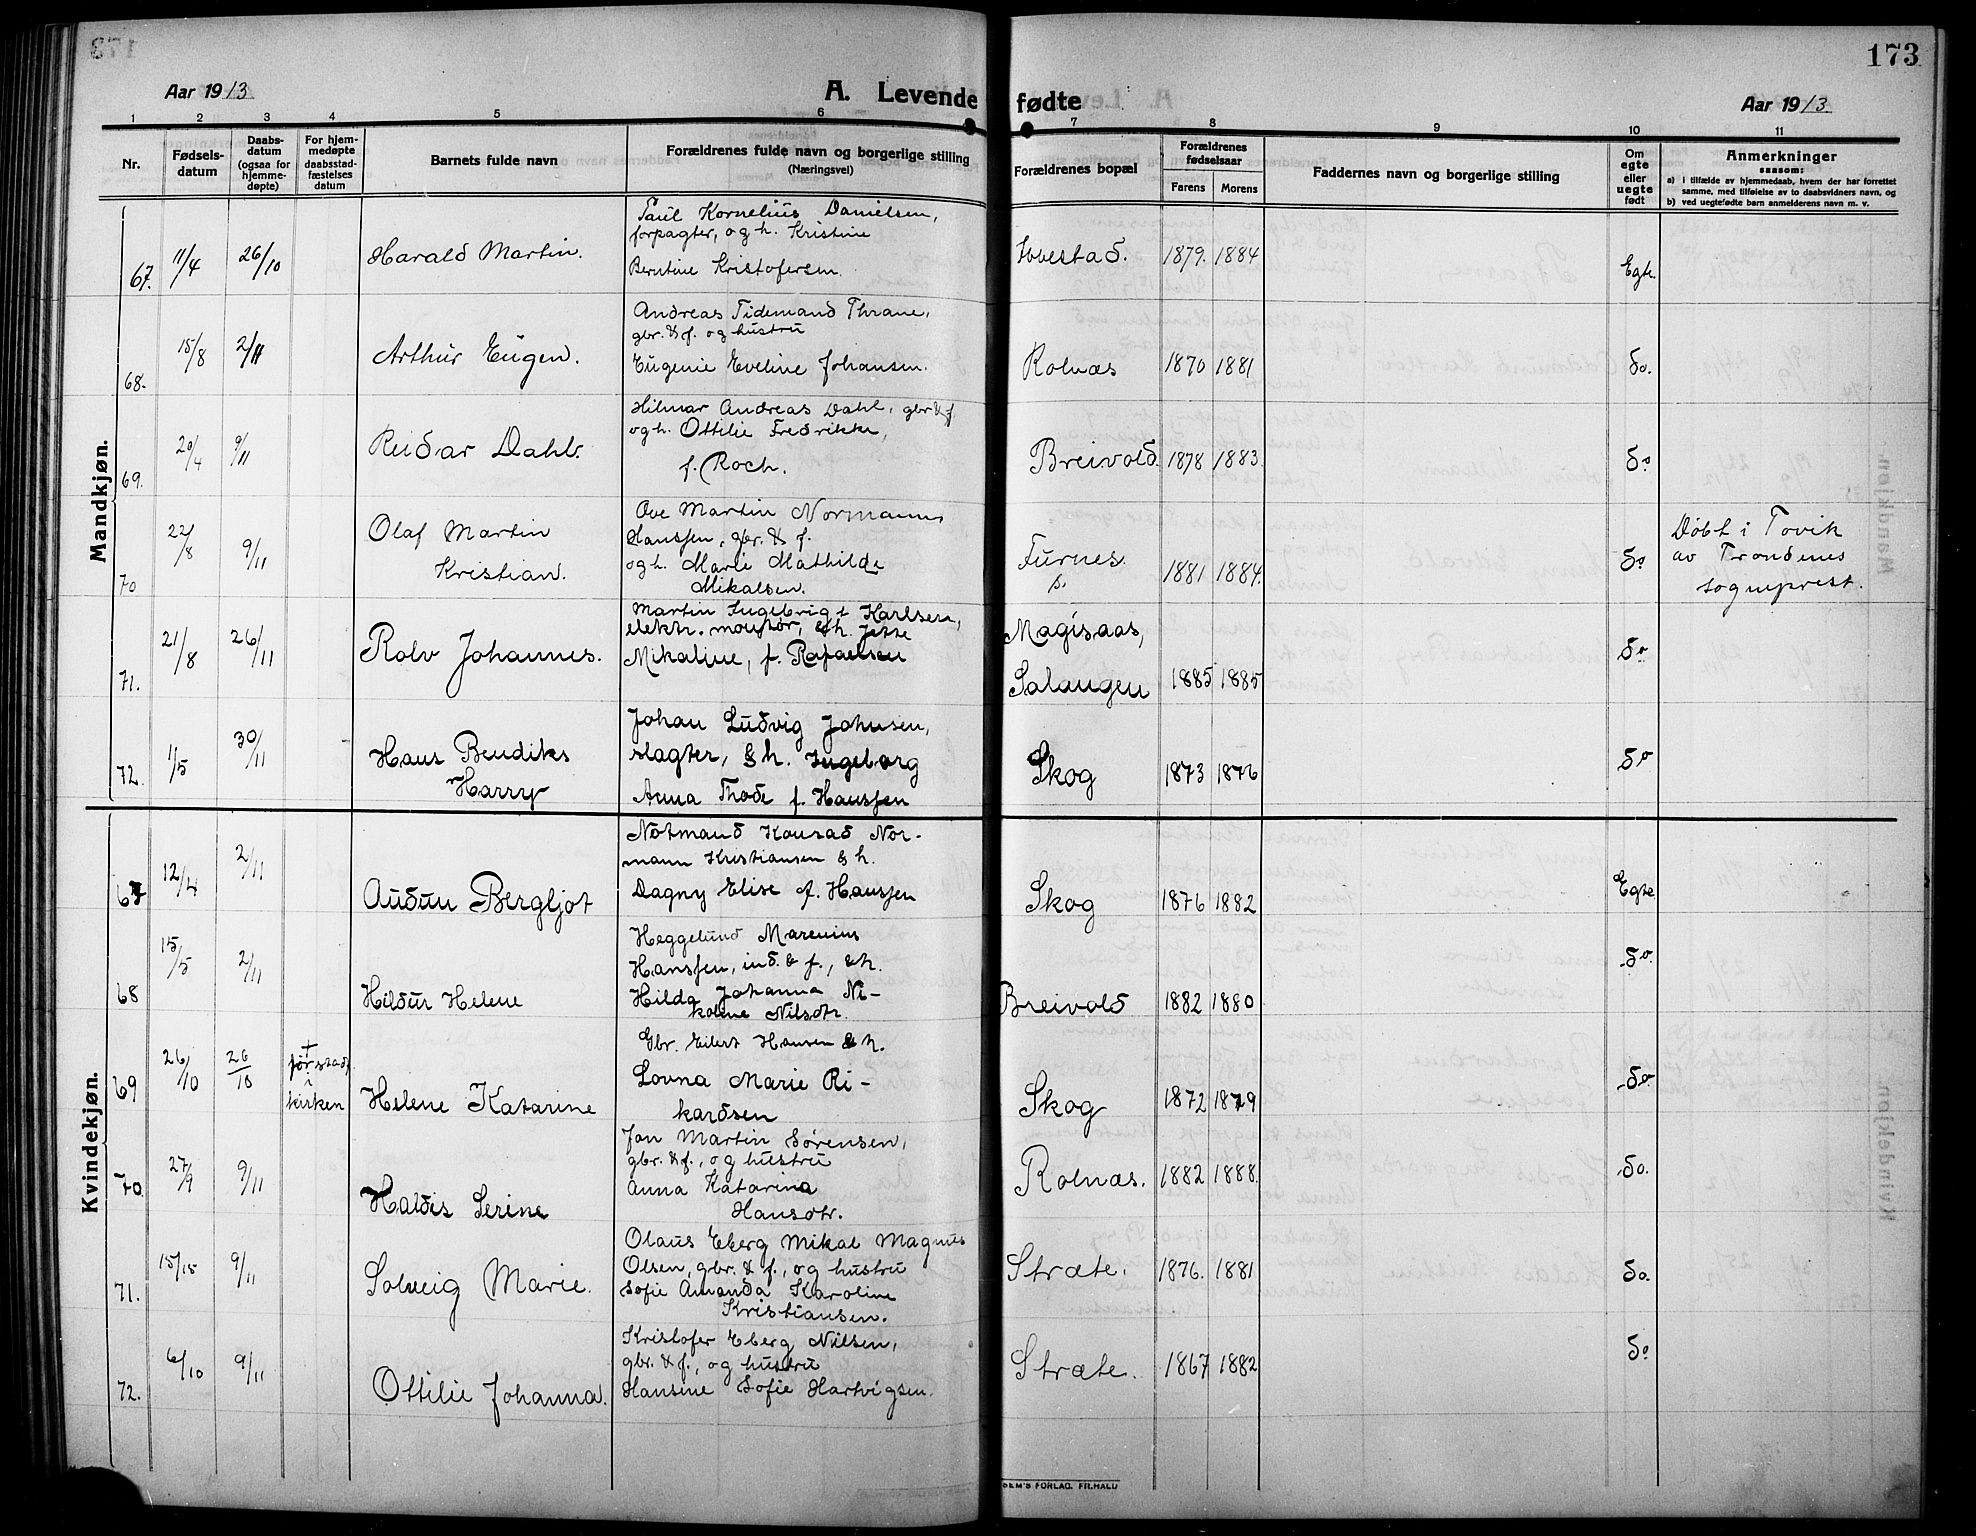 173
Aar 1913
A. Levende fødte
Aar 1913
1 2 3 4 5 6 7 8 9 10 11
Nr.
Fødsels-
datum
Daabs-
datum
(ogsaa for
hjemme-
døpte)
For hjem-
medøpte
daabsstad-
fæstelses
datum
Barnets fulde navn
Forældrenes fulde navn og borgerlige stilling
(Næringsvei)
Forældrenes bopæl
Forældrenes
fødselsaar
Farens Morens
Faddernes navn og borgerlige stilling
Om
egte
eller
uegte
født
Anmerkninger
saasom:
a) i tilfælde av hjemmedaab, hvem der har forrettet
samme, med tilføielse av to daabsvidners navn, og
b) ved uegtefødte barn anmelderens navn m. v.
Mandkjøn.
67. 11/4 26/10 Harald Martin.
Paul Kornelius Danielsen,
forpagter, og h. Kristine
Berntine Kristofersen.
Ibbestad. 1879. 1884 Egte.
68. 15/8 2/11 Arthur Eugen.
Andreas Tidemand Thrane,
gbr. & f. og hustru
Eugenie Eveline Johansen.
Rolnæs 1870 1881 do.
69. 20/4 9/11 Reidar Dahl.
Hilmar Andreas Dahl, gbr & f
og h. Ottilie Fredrikke,
f. Roch.
Breivold. 1878 1883. do
70 22/8 9/11 Olaf Martin
Kristian.
Ove Martin Normanns
Hanssen, gbr. & f.
og h. Marie Mathilde
Mikalsen.
Furnes. 1881 1884. do
Døbt i Tovik
av Trondenes
sogneprest.
71. 21/8 26/11 Rolv Johannes.
Martin Ingebrigt Karlsen,
elektr. montør, & h. Jette
Mikaline, f. Rafaelsen
Magisaas,
Salangen 1885 1885 do
72. 1/5 30/11 Hans Bendiks
Harry
Johan Ludvig Johnsen,
slagter, & h. Ingeborg
Anna Thode f. Hanssen
Skog 1873 1876 do
Kvindekjøn.
67 12/4 2/11 Audun Bergljot
Notmand Konrad Nor-
mann Kristiansen & h.
Dagny Elise f. Hanssen
Skog 1876 1882 Egte
68 15/5 2/11 Hildur Helene
Heggelund Marenius
Hanssen, ind. & f., & h.
Hilda Johanna Ni-
koline Nilsdtr.
Breivold 1882 1880 do.
69 26/10 26/10 kirken Helene Katarine
Gbr. Eilert Hansen & h.
Lovna Marie Ri-
kardsen
Skog 1872 1879 do
70. 27/9 9/11 Haldis Serine
Jon Martin Sørensen,
gbr. & f., og hustru
Anna Katarina
Hansdtr.
Rolnæs. 1882 1888. do.
71. 15/15 9/11 Solveig Marie.
Olaus Eberg Mikal Magnus
Olsen, gbr. & f., og hustru
Sofie Amanda Karoline
Kristiansen.
Stræte. 1876. 1881 do.
72. 6/10 9/11 Ottilie Johanna.
Kristofer Eberg Nilsen,
gbr. & f., og hustru
Hansine Sofie Hartvigsen.
Stræte. 1867 1882 do
DEM'S FORLAG. FR.HALD